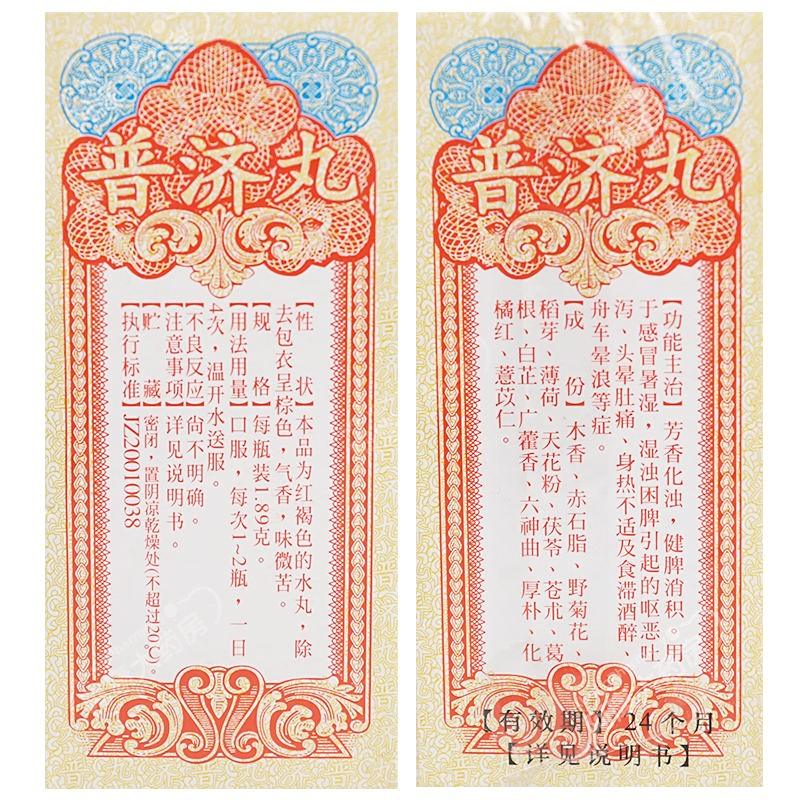 普济丸
【性　状】本品为红褐色的水丸，除
去包衣呈棕色，气香，味微苦。
【规　格】每瓶装1.89克。
【用法用量】口服，每次1~2瓶，一日
4次，温开水送服。
【不良反应】尚不明确。
【注意事项】详见说明书。
【贮　藏】密闭，置阴凉乾燥处(不超过20℃)。
【执行标准】JZ20010038
普济丸
【功能主治】芳香化浊，健脾消积。用
于感冒暑湿，湿浊困脾引起的呕恶吐
泻、头晕肚痛、身热不适及食滞酒醉、
舟车晕浪等症。
【成　份】木香、赤石脂、野菊花、
稻芽、薄荷、天花粉、茯苓、苍朮、葛
根、白芷、广藿香、六神曲、厚朴、化
橘红、薏苡仁。
【有效期】24个月
【详见说明书】